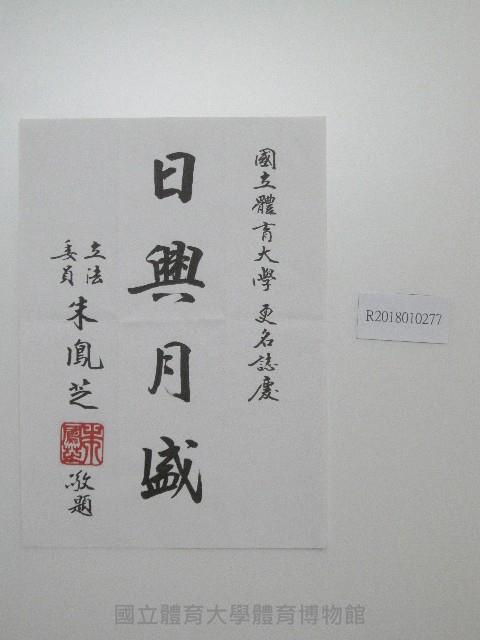 國立體育大學 更名誌慶
日興月盛
立法委員 朱鳳芝 敬題
朱鳳芝
R2018010277
國立體育大學體育博物館